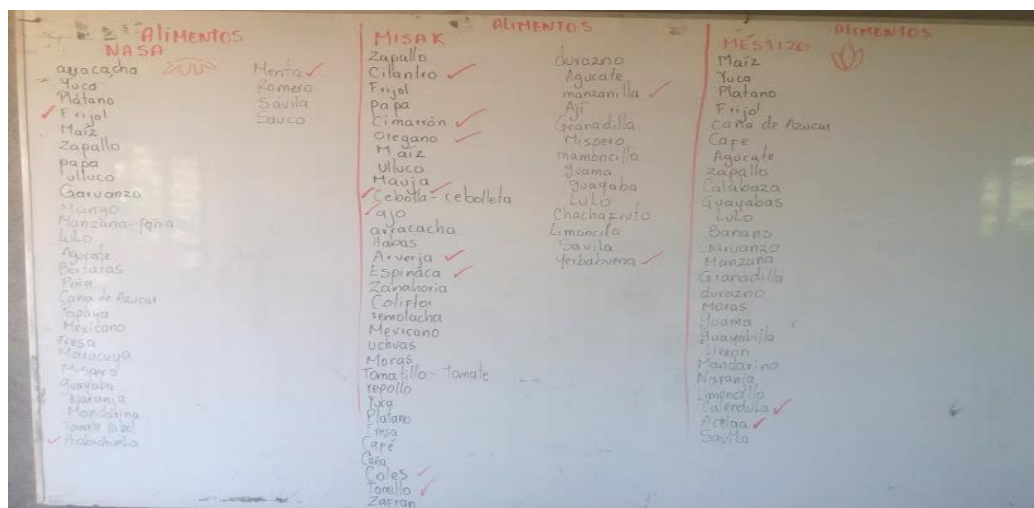 ALIMENTOS
NASA
arracacha
Yuca
Plátano
Frijol
Maíz
Zapallo
papa
ulluco
Garvanzo
Mango
Manzana-
Lulo
Agucate
Piña
Caña de Azucar
Papaya
Mexicano
Fresa
Maracuya
guayaba
Naranja
Mandarina
Tomate
Habichuela
Menta
Romero
Savila
Sauco
ALIMENTOS
MISAK
Zapallo
Cilantro
Frijol
Papa
Cimarrón
Oregano
Maíz
Ulluco
Mauja
Cebolla - cebolleta
ajo
arracacha
Habas
Arverja
Espinaca
Zanahoria
Coliflor
remolacha
Mexicano
uchuas
Moras
Tomatillo - Tomate
repollo
Yuca
Platano
Fresa
Café
Caña
Coles
Tomillo
Zafran
durazno
Agucate
manzanilla
Ají
Granadilla
Mispero
mamoncillo
guama
guayaba
LuLo
Chachafruto
Limoncillo
Savila
Yerbabuena
ALIMENTOS
MESTIZO
Maíz
Yuca
Platano
Frijol
Caña de Azucar
Cafe
Agucate
zapallo
Calabaza
Guayabas
LuLo
Banano
Garvanzo
Manzana
Granadilla
durazno
Moras
Guama
Limón
Mandarino
Naranja
Limoncillo
Calendula
Acelga
Savila